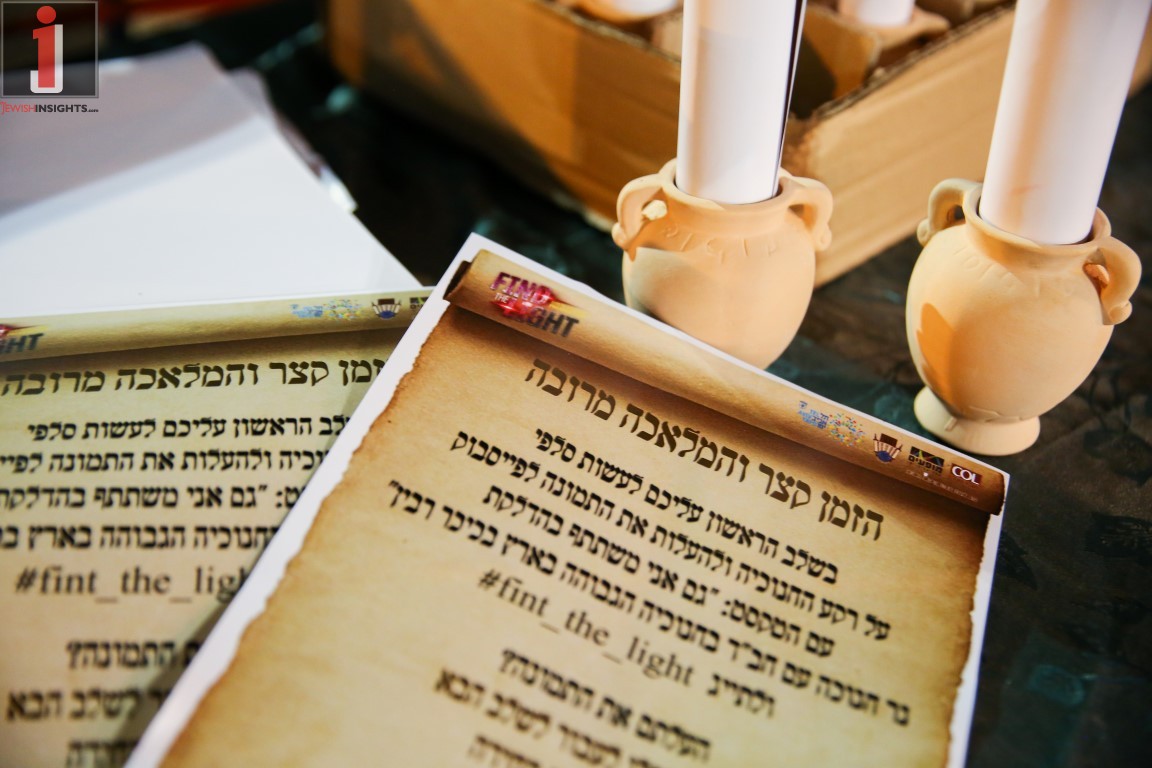 JEWISHINSIGHTS.com
FIND
THE
LIGHT
COL
מופעים
הזמן קצר והמלאכה מרובה
בשלב הראשון עליכם לעשות סלפי
על רקע החנוכיה ולהעלות את התמונה לפייסבוק
עם הטקסט: "גם אני משתתף בהדלקת
נר חנוכה עם חב"ד בחנוכיה הגבוהה בארץ בכיכר רבין"
ולתייג #fint_the_light
העליתם את התמונה?
לעבור לשלב הבא
הזמן קצר והמלאכה מרובה
הראשון עליכם לעשות סלפי
ולהעלות את התמונה
"גם אני משתתף בהדלקת
הגבוהה בארץ
התמונה?
לשלב הבא